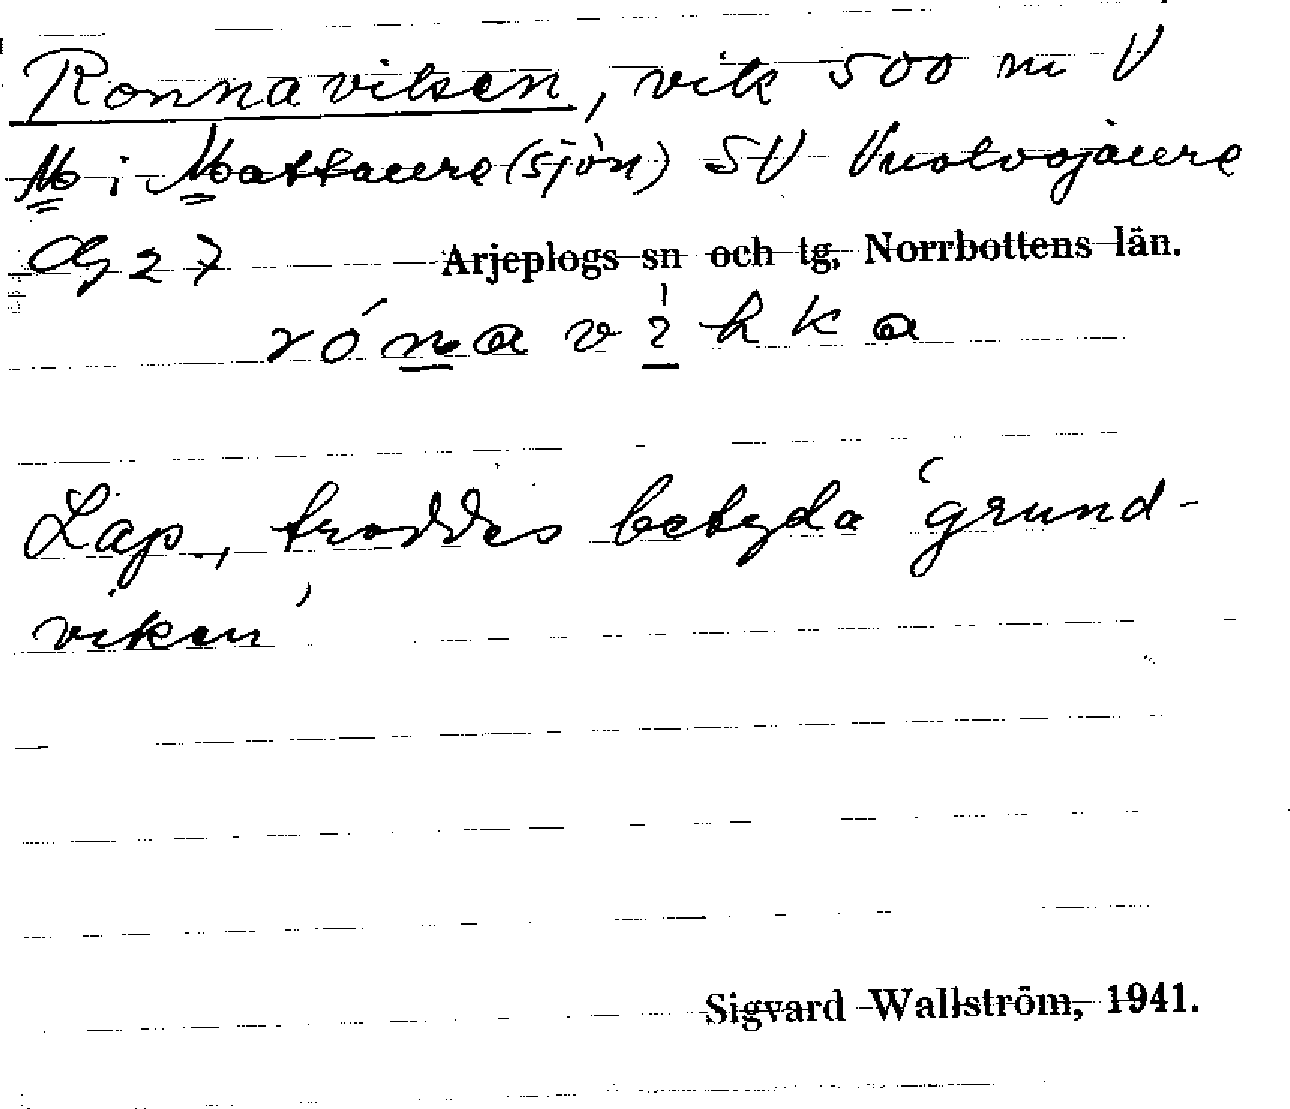 Ronnaviken, vik 500 m V
M i Mattaure (sjön) SV Vuolvojaure
27 Arjeplogs sn och tg, Norrbottens län.
rónavihka
Lap., troddes betyda 'grund-
viken'
Sigvard Wallström, 1941.